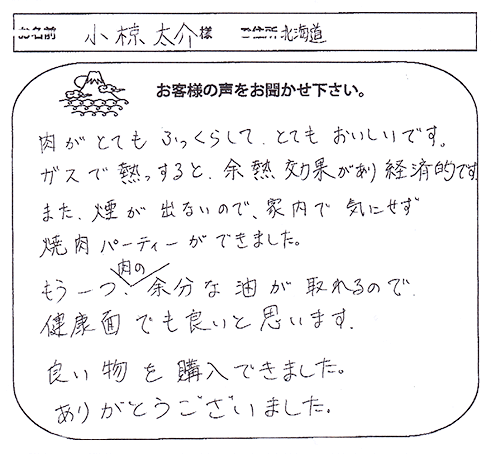 お名前 小椋 太介 様 ご住所 北海道
お客様の声をお聞かせ下さい。
肉がとてもふっくらして、とてもおいしいです。
ガスで熱っすると、余熱効果があり経済的です
また、煙が出ないので、家内で気にせず
焼肉パーティーができました。
肉の
もう一つ、余分な油が取れるので、
健康面でも良いと思います。
良い物を購入できました。
ありがとうございました。